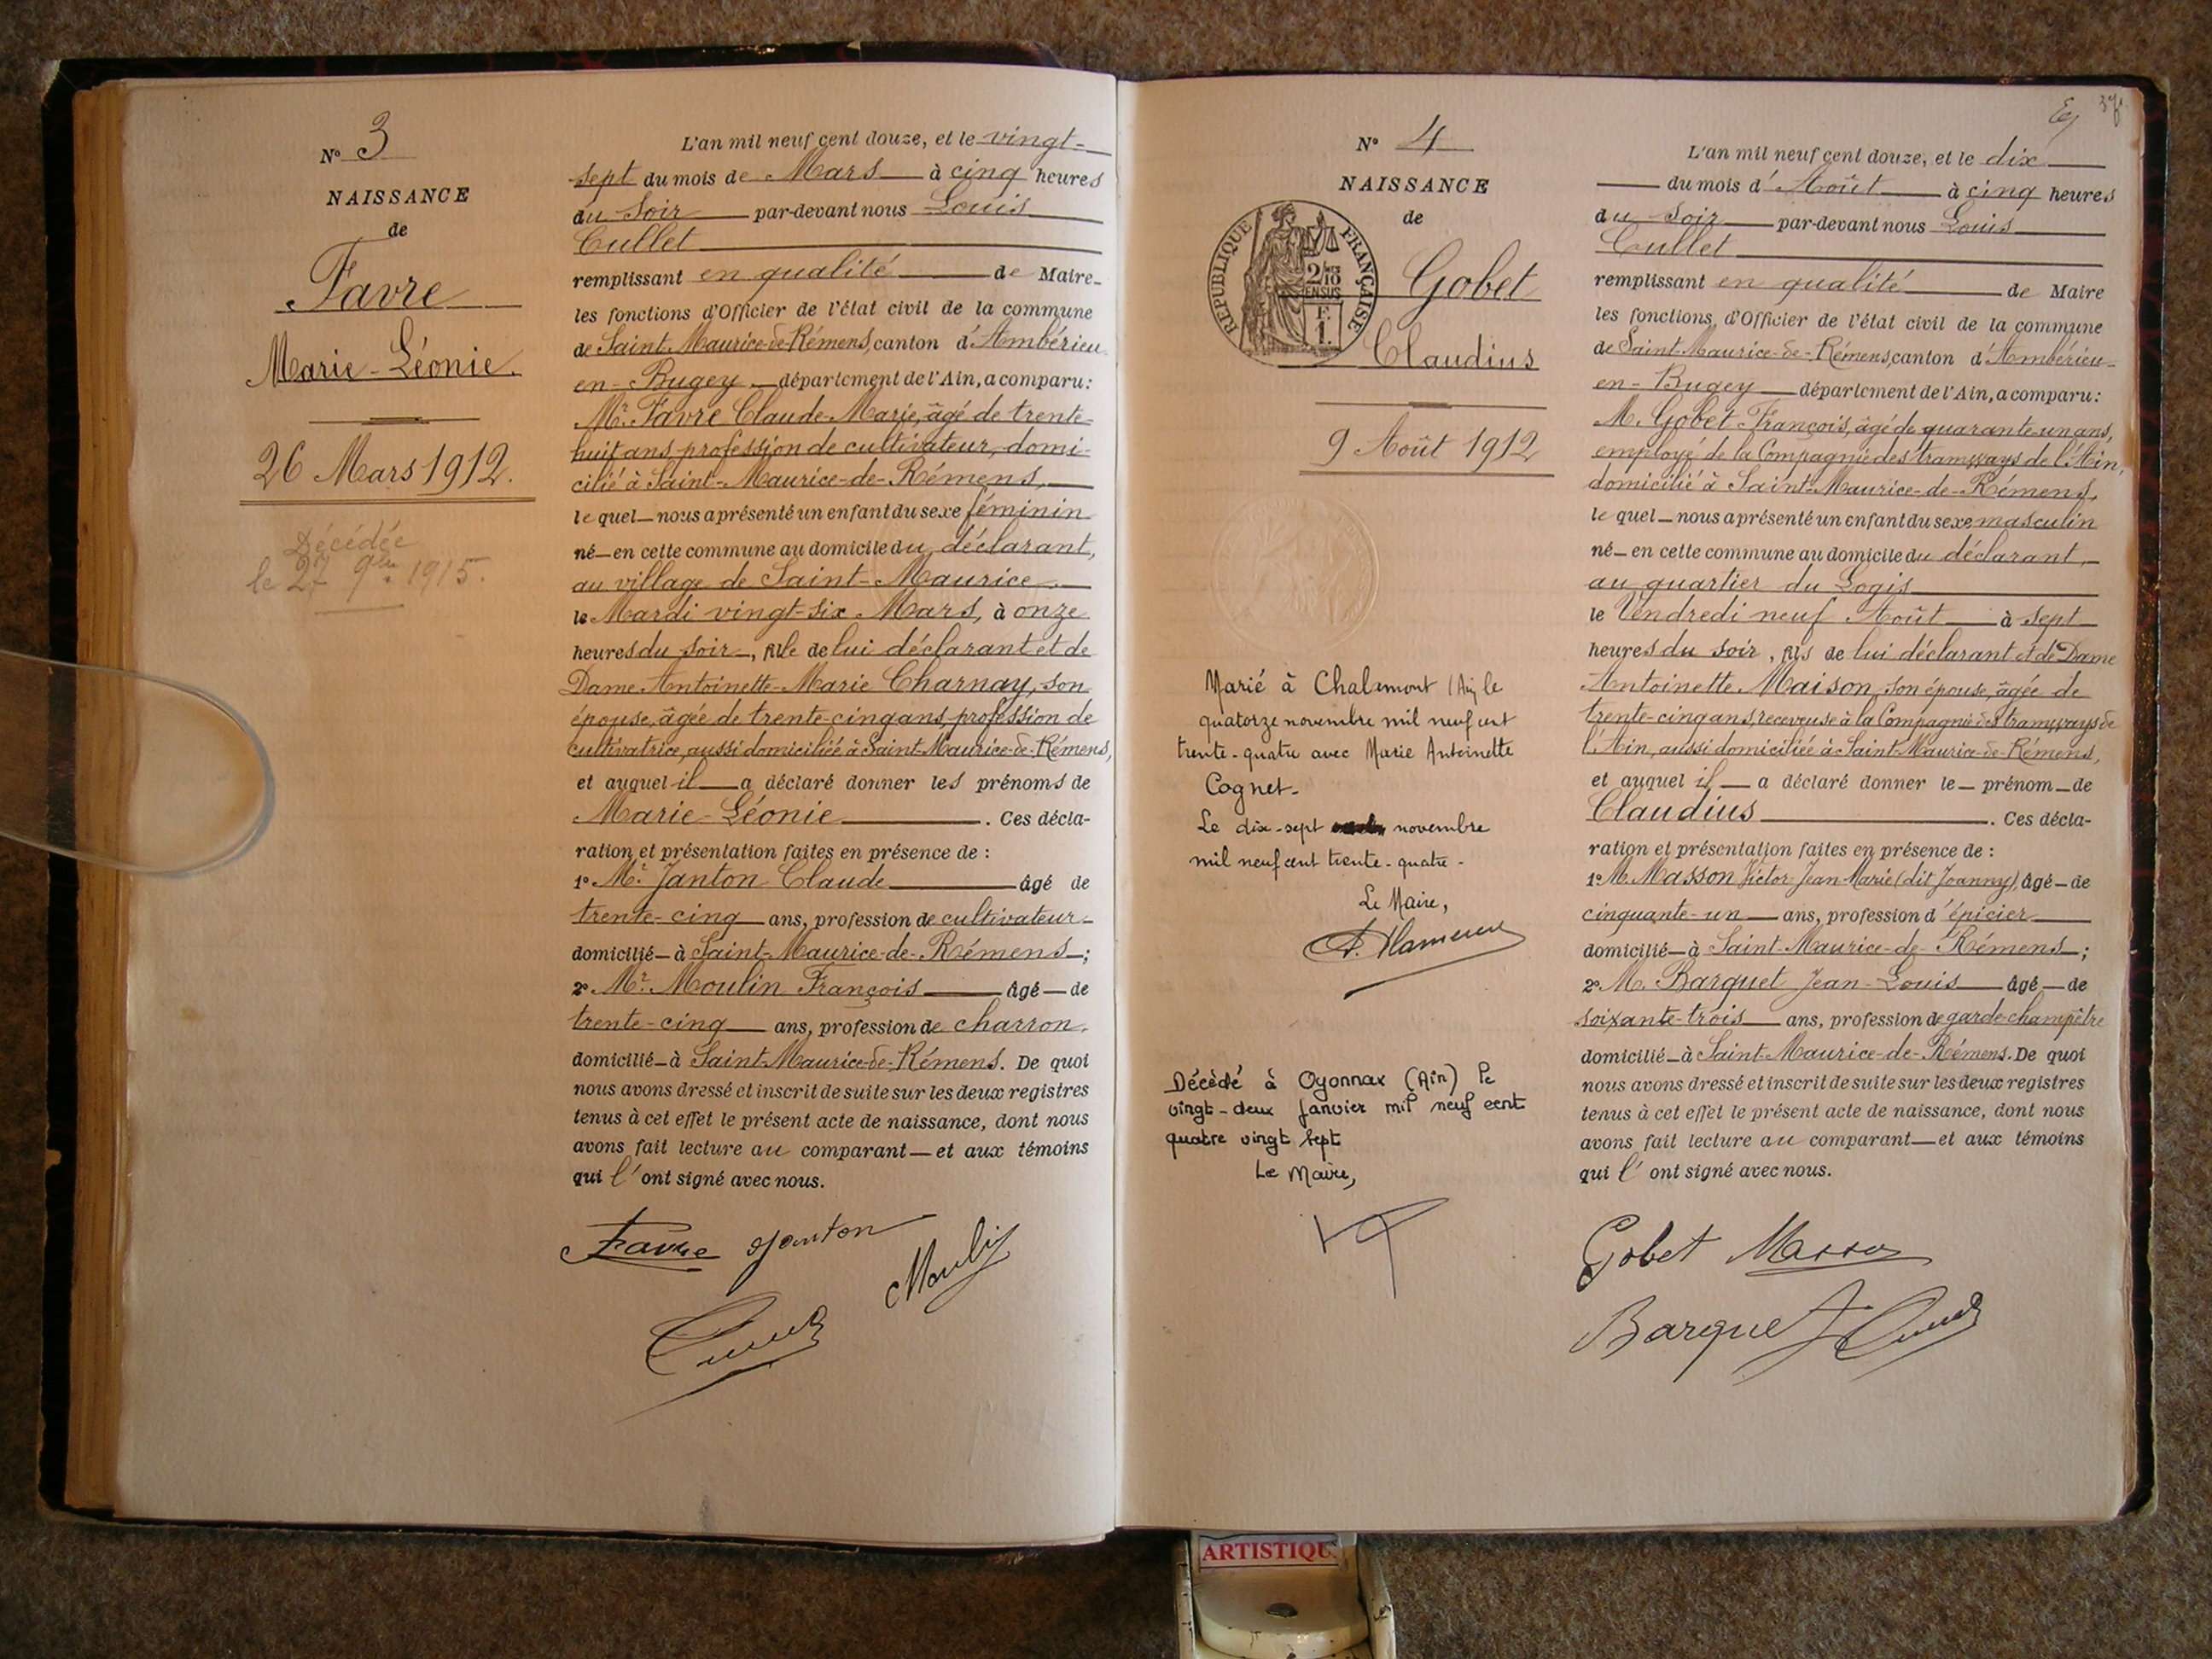 N° 3
NAISSANCE
de
Favre
Marie-Léonie.
26 Mars 1912.
Décédée
le 27 9bre 1915.
L'an mil neuf cent douze, et le vingt-
sept du mois de Mars à cinq heures
du soir par-devant nous Louis
Cullet
remplissant en qualité de Maire
les fonctions d'Officier de l'état civil de la commune
de Saint-Maurice-de-Rémens, canton d'Ambérieu-
en-Bugey département de l'Ain, a comparu:
Mr. Favre Claude-Marie, âgé de trente-
huit ans, profession de cultivateur, domi-
cilié à Saint-Maurice-de-Rémens,
lequel nous a présenté un enfant du sexe féminin
né en cette commune au domicile du déclarant,
au village de Saint-Maurice
le Mardi vingt-six Mars, à onze
heures du soir, fille de lui déclarant et de
Dame Antoinette-Marie Charnay, son
épouse, âgée de trente-cinq ans, profession de
cultivatrice, aussi domiciliée à Saint-Maurice-de-Rémens,
et auquel il a déclaré donner les prénoms de
Marie-Léonie. Ces décla-
ration et présentation faites en présence de :
1° Mr. Janton Claude âgé de
trente-cinq ans, profession de cultivateur
domicilié à Saint-Maurice-de-Rémens ;
2° Mr. Moulin François âgé de
trente-cinq ans, profession de charron,
domicilié à Saint-Maurice-de-Rémens. De quoi
nous avons dressé et inscrit de suite sur les deux registres
tenus à cet effet le présent acte de naissance, dont nous
avons fait lecture au comparant et aux témoins
qui l'ont signé avec nous.
Favre Janton
Moulin
Cullet
N° 4
NAISSANCE
de
RÉPUBLIQUE FRANÇAISE
2/10
EN SUS
F.
1.
Gobet
Claudius
9 Août 1912
Marié à Chalamont (Ain) le
quatorze novembre mil neuf cent
trente-quatre avec Marie Antoinette
Cognet-
Le dix-sept novembre
mil neuf cent trente-quatre-
Le Maire,
Décèdé à Oyonnax (Ain) le
vingt-deux Janvier mil neuf cent
quatre vingt sept
Le Maire,
L'an mil neuf cent douze, et le dix
du mois d'Août à cinq heures
du soir par-devant nous Louis
Cullet
remplissant en qualité de Maire
les fonctions d'Officier de l'état civil de la commune
de Saint-Maurice-de-Rémens, canton d'Ambérieu-
en-Bugey département de l'Ain, a comparu:
M. Gobet François, âgé de quarante-un ans,
employé de la Compagnie des tramways de l'Ain,
domicilié à Saint-Maurice-de-Rémens,
lequel nous a présenté un enfant du sexe masculin
né en cette commune au domicile du déclarant,
au quartier du Logis
le Vendredi neuf Août à sept
heures du soir, fils de lui déclarant et de Dame
Antoinette Maison, son épouse, âgée de
trente-cinq ans, receveuse à la Compagnie des tramways de
l'Ain, aussi domiciliée à Saint-Maurice-de-Rémens,
et auquel il a déclaré donner le prénom de
Claudius. Ces décla-
ration et présentation faites en présence de :
1° M. Masson Victor-Jean-Marie (dit Joanny), âgé de
cinquante-un ans, profession d'épicier
domicilié à Saint-Maurice-de-Rémens ;
2° M. Barquet Jean-Louis âgé de
soixante-trois ans, profession de garde-champêtre
domicilié à Saint-Maurice-de-Rémens. De quoi
nous avons dressé et inscrit de suite sur les deux registres
tenus à cet effet le présent acte de naissance, dont nous
avons fait lecture au comparant et aux témoins
qui l'ont signé avec nous.
Gobet Masson
Barquet Cullet
ARTISTIQU